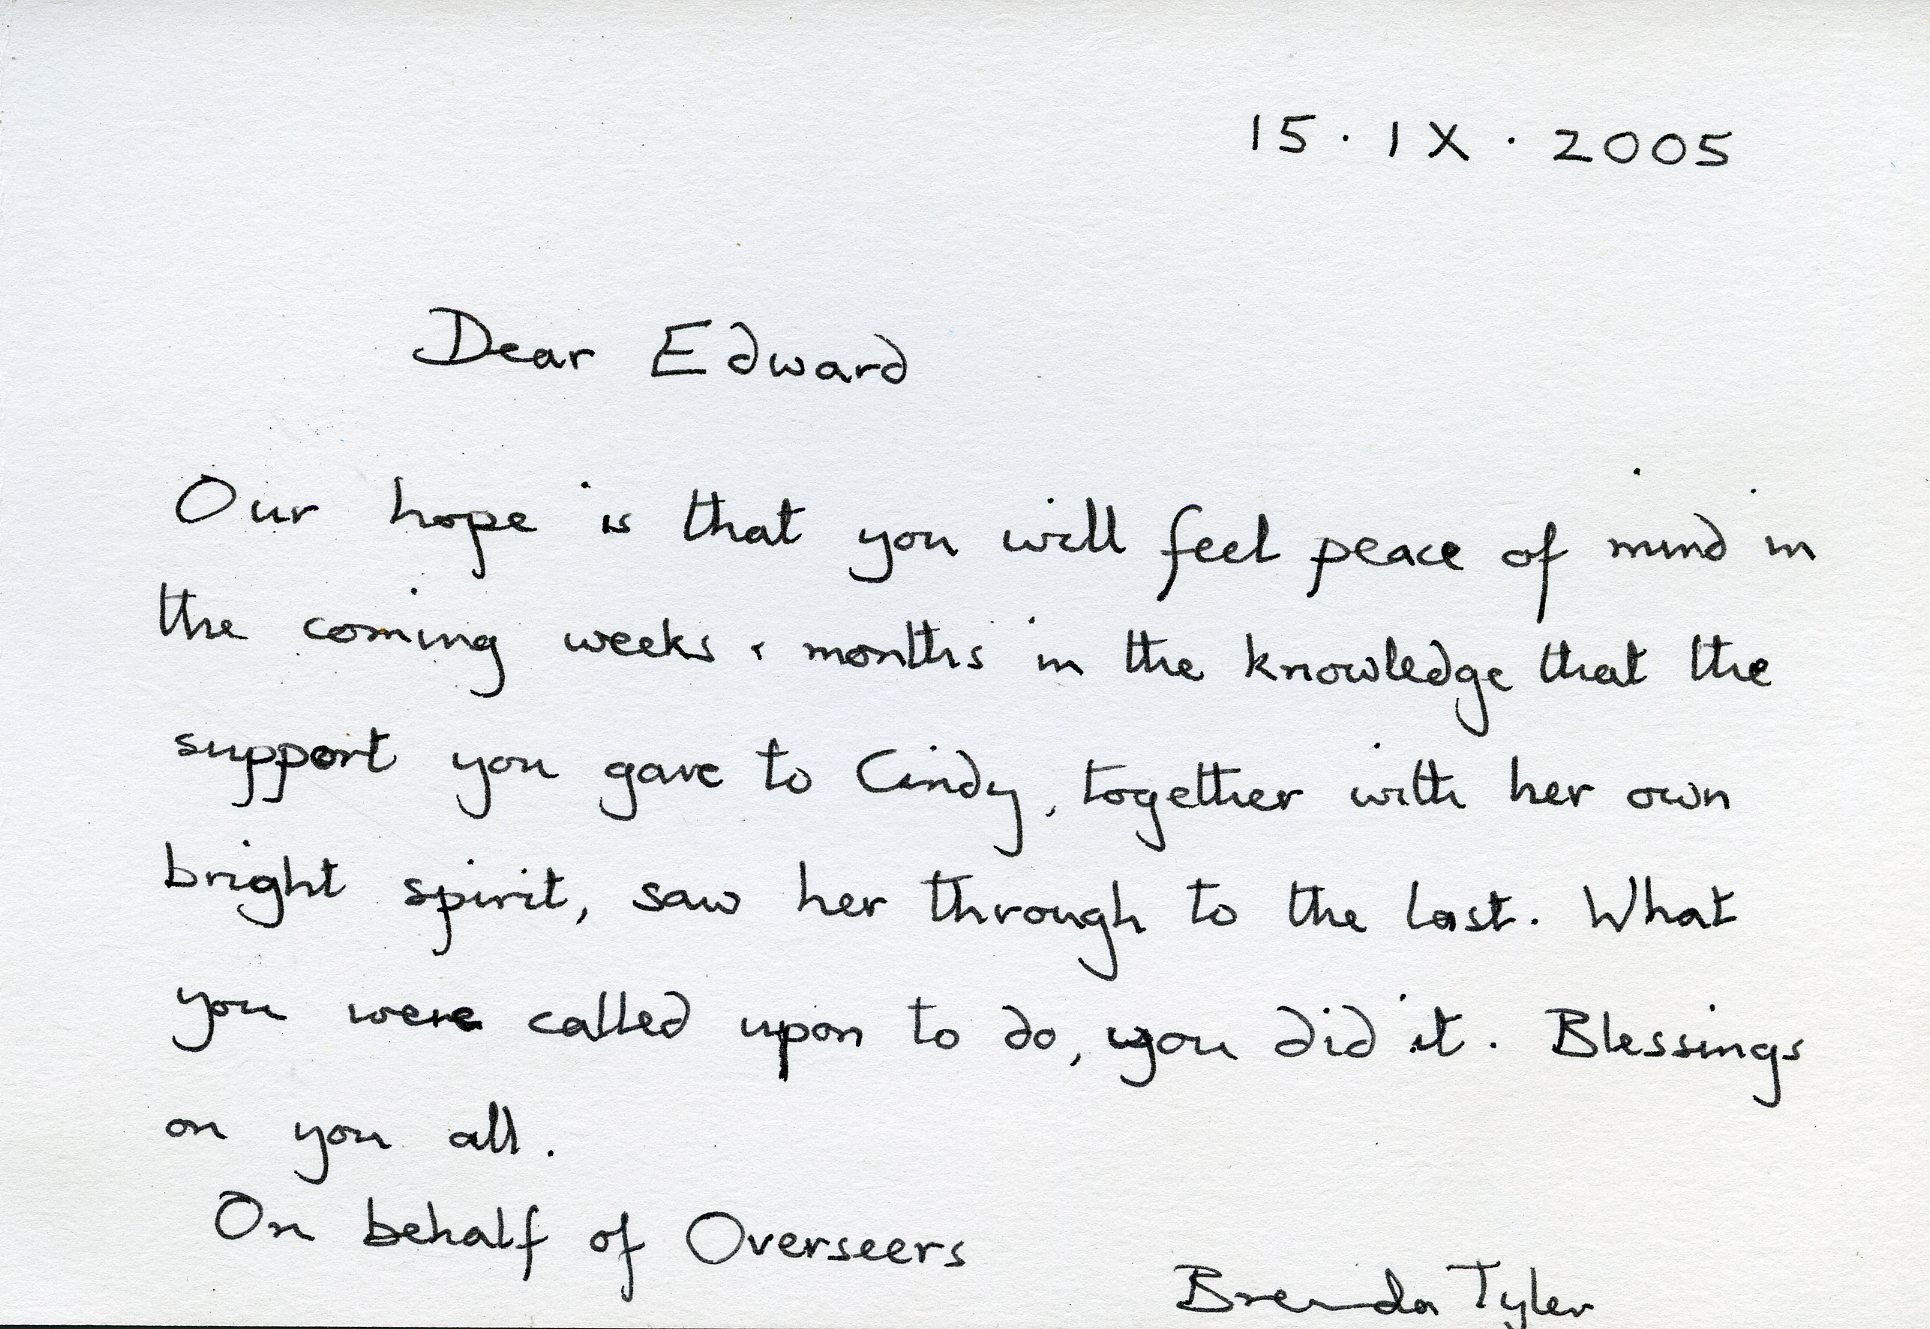 15 · IX · 2005
Dear Edward
Our hope is that you will feel peace of mind in
the coming weeks & months in the knowledge that the
support you gave to Cindy, together with her own
bright spirit, saw her through to the last. What
you were called upon to do, you did it. Blessings
on you all.
On behalf of Overseers
Brenda Tyler